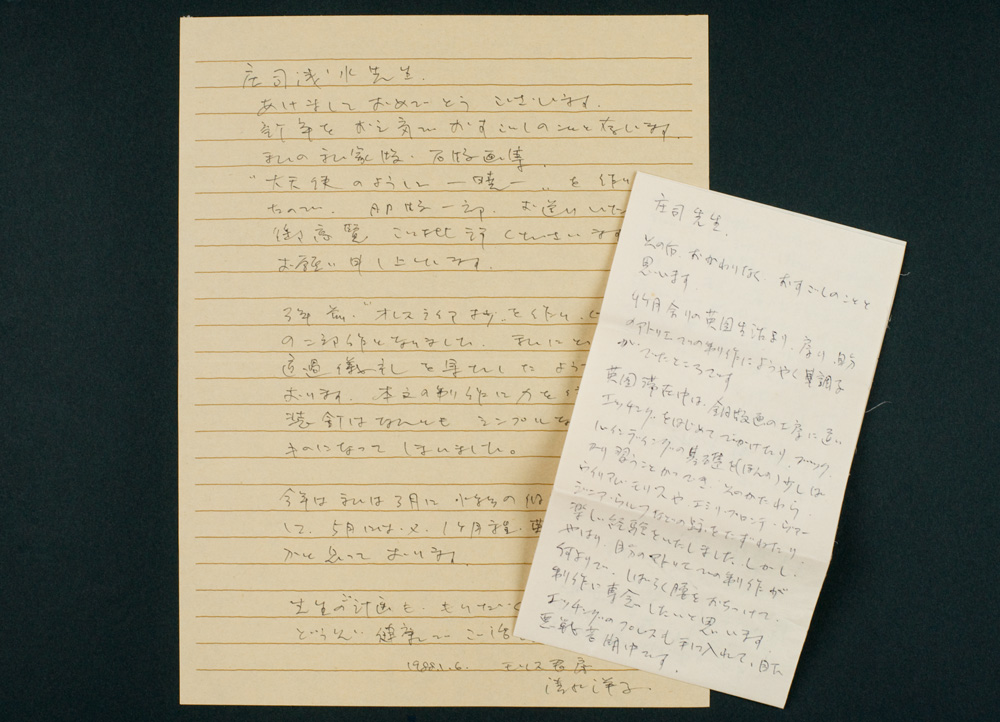 庄司浅水先生.
あけましておめでとうございます.
新年をお元気でおすごしのことと存じます.
私の私家版・石版画集
"大天使のように —暁—" を作り
ので. 一部. お送りいた
御高覧 下さいます
お願い申し上げます.
3年前. "オレスティア" を作り.
の二部作となりました. 私にと
通過儀礼を果たしたよう
おります. 本文の制作に力を
装幀はなんとも シンプルな
ものになってしまいました。
今年は私は3月に の個
して. 5月には. 又. 1ヶ月程. 英
かと思っております.
先生の計画も. もりだく
どうぞ. 健康で ご活
1988.1.6.
清水洋子.
庄司先生.
その后. おかわりなく. おすごしのことと
思います.
4ヶ月余りの英国生活より. 戻り. 自分
のアトリエでの制作にようやく 調子
がでたところです
英国滞在中は. 銅版画の工房に通い
エッチングをはじめて てがけたり. ブック
バインディングの基礎を(ほんの)少しば
かり習うことができ. そのかたわら.
ウイリアム・モリスや エミリ・ブロンテ・ヴァー
ジニア・ウルフなどの跡をたずねたり
楽しい経験をいたしました. しかし.
やはり. 自分のアトリエでの制作が
何よりで. しばらく腰をおちつけて.
制作に専念したいと思います.
エッチングのプレスも手に入れて.
悪戦苦闘中です.